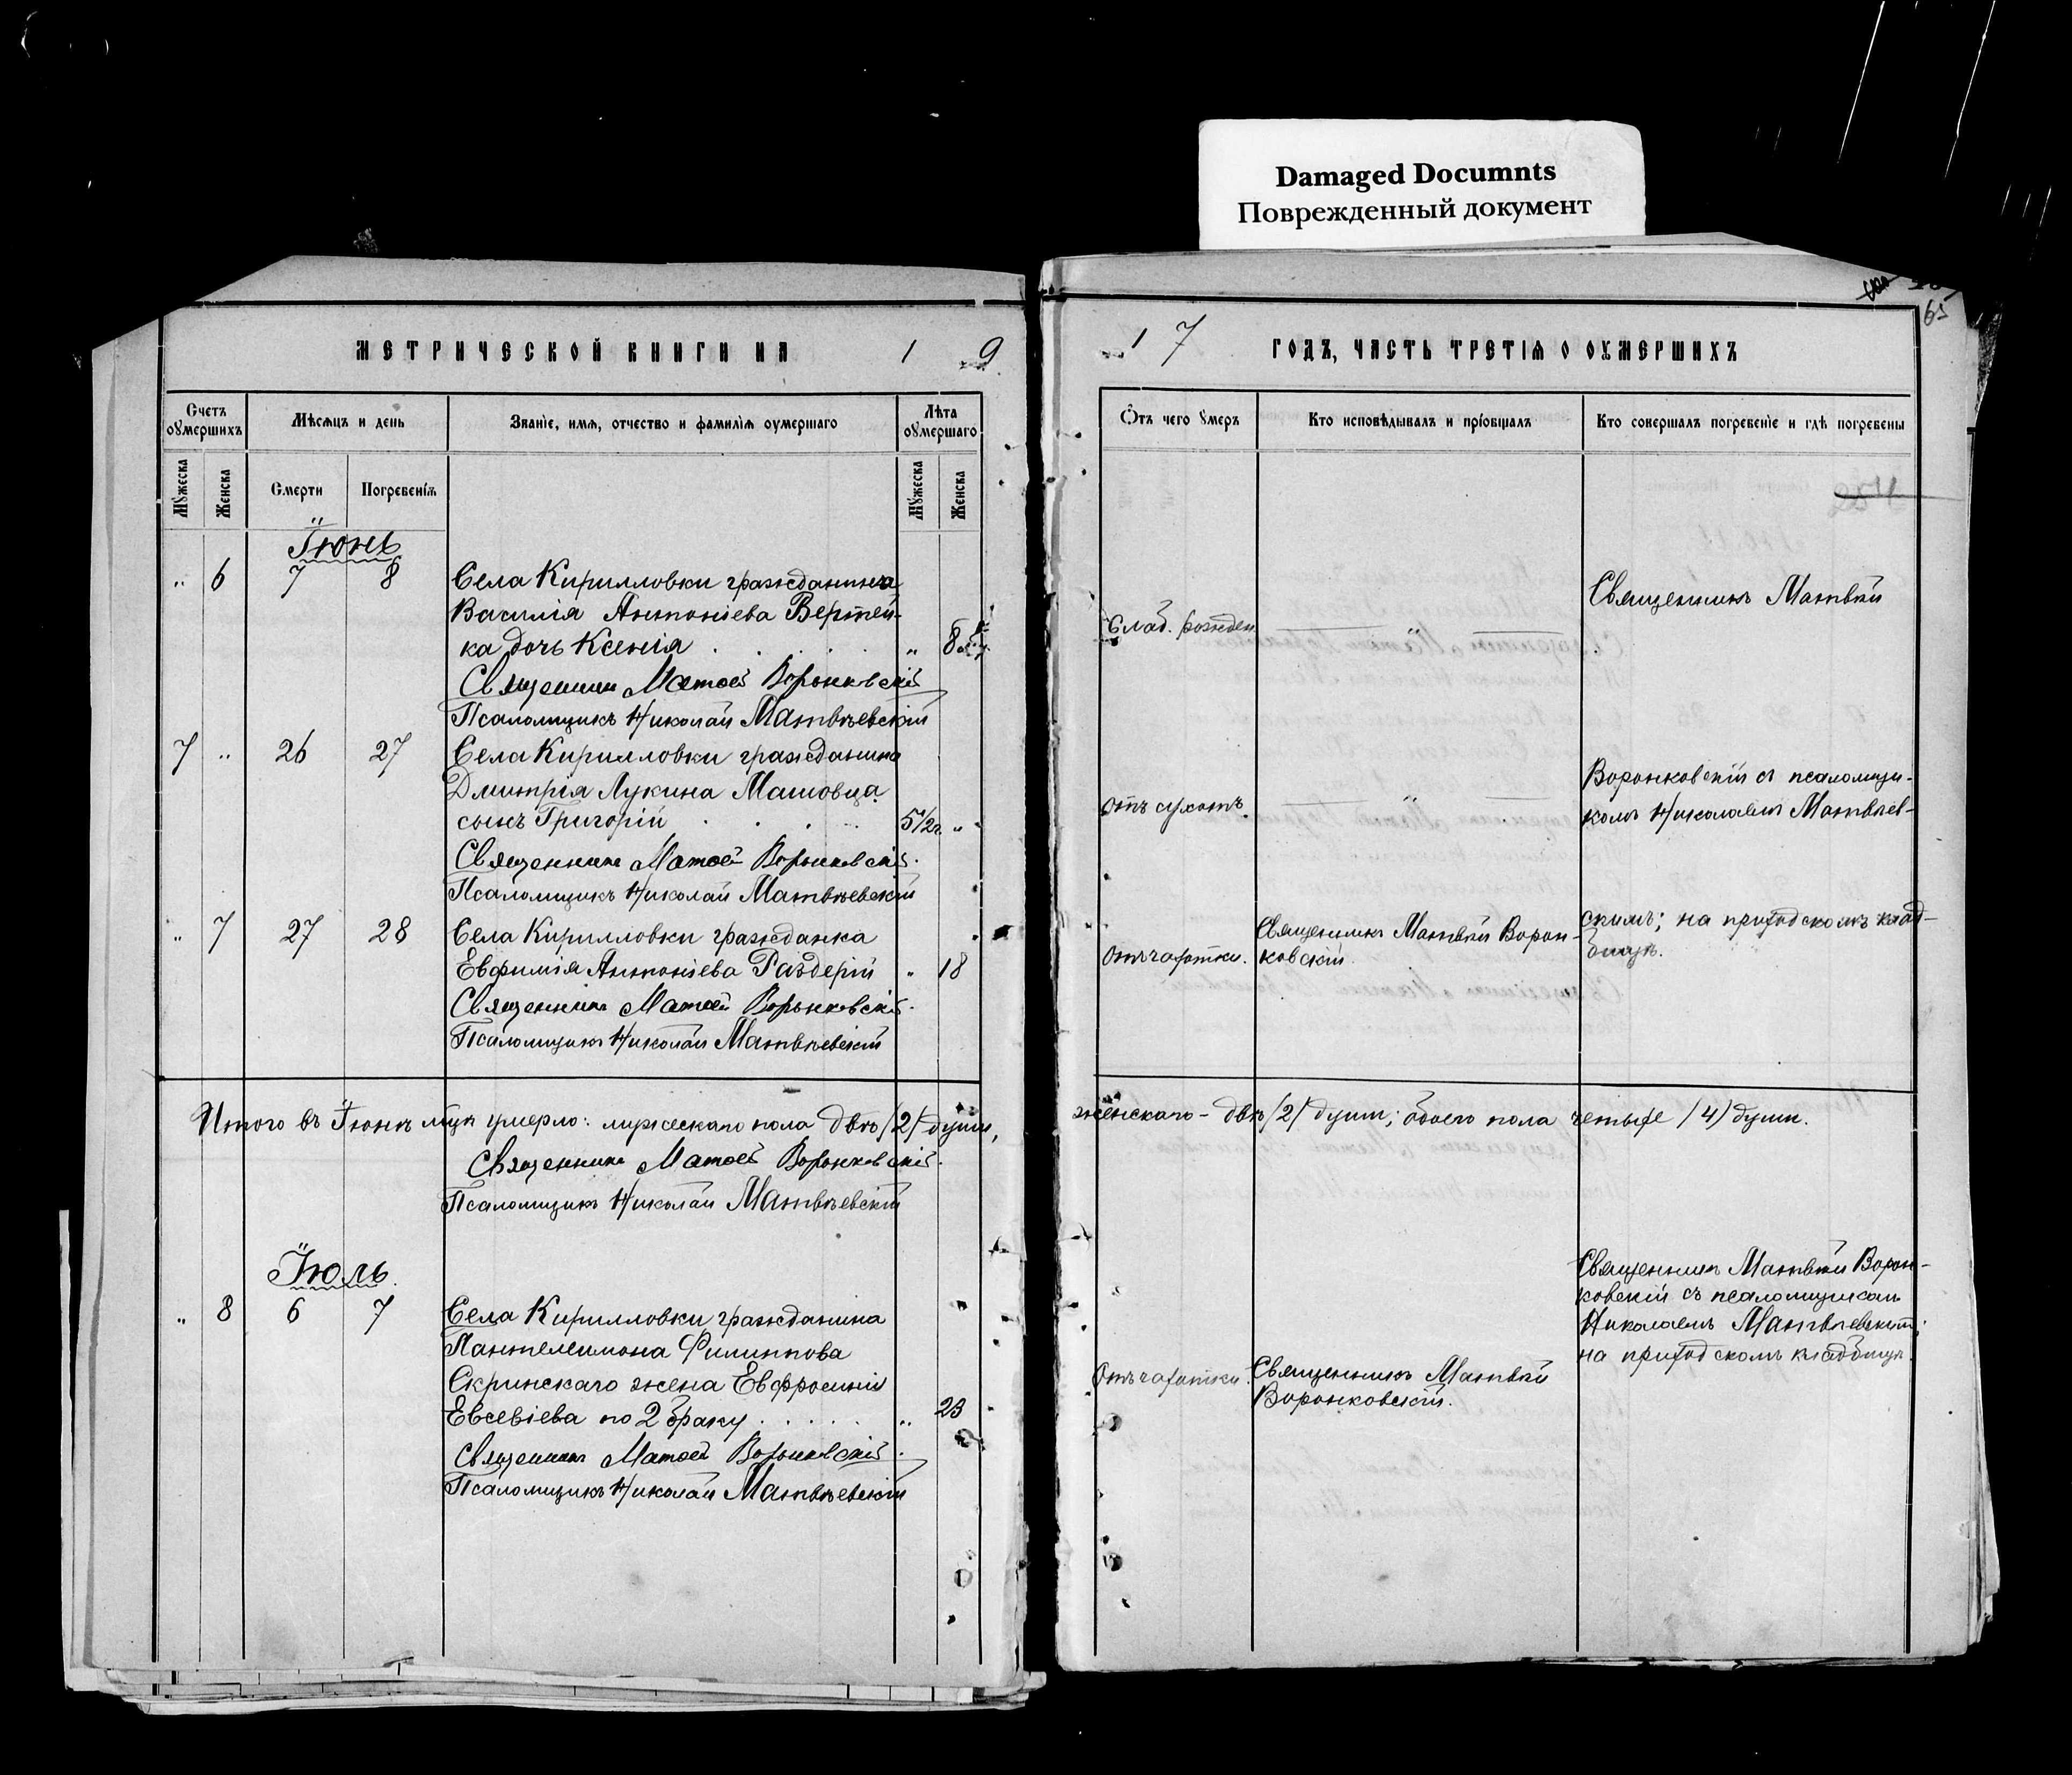 Damaged Documnts
Поврежденный документ
МЕТРИЧЕСКОЙ КНИГИ НА 1 9
Счетъ оумершихъ
Мѣсяцъ и день
Званіе, имя, отчество и фамилія оумершаго
Лѣта оумершаго
Мꙋжеска
Женска
Смерти
Погребенія
Мꙋжеска
Женска
Іюнь
" 6 7 8 Села Кирилловки гражданина
Василія Антоніева Вертей-
ка дочь Ксенія . . . . . " 8
Священникъ Матѳей Воронковскій
Псаломщикъ Николай Матвѣевскій
7 " 26 27 Села Кирилловки гражданина
Дмитрія Лукина Машовца
сынъ Григорій . . . . 5 1/2 г. "
Священникъ Матѳей Воронковскій.
Псаломщикъ Николай Матвѣевскій
" 7 27 28 Села Кирилловки гражданка
Евфимія Антоніева Раздерій " 18
Священникъ Матѳей Воронковскій.
Псаломщикъ Николай Матвѣевскій
Итого въ Іюнѣ мцѣ умерло: мужескаго пола двѣ /2/ души,
Священникъ Матѳей Воронковскій.
Псаломщикъ Николай Матвѣевскій
Іюль.
" 8 6 7 Села Кирилловки гражданина
Пантелеимона Филиппова
Скринскаго жена Евфросинія
Евсевіева по 2 браку . . . . . " 23
Священникъ Матѳей Воронковскій.
Псаломщикъ Николай Матвѣевскій
65
1 7 ГОДЪ, ЧАСТЬ ТРЕТІЯ О ОУМЕРШИХЪ
Ѿтъ чего ꙋмеръ
Кто исповѣдывалъ и пріобщалъ
Кто совершалъ погребеніе и гдѣ погребены
Священникъ Матвѣй
Слаб. рожден.
Воронковскій съ псаломщи-
Отъ сухотъ.
комъ Николаемъ Матвѣев-
скимъ; на приходскомъ клад-
бищѣ.
Отъ чахотки.
Священникъ Матвѣй Ворон-
ковскій.
женскаго - двѣ /2/ души; обоего пола четыре /4/ души.
Священникъ Матвѣй Ворон-
ковскій съ псаломщикомъ
Николаемъ Матвѣевскимъ;
на приходскомъ кладбищѣ.
Отъ чахотки.
Священникъ Матвѣй
Воронковскій.